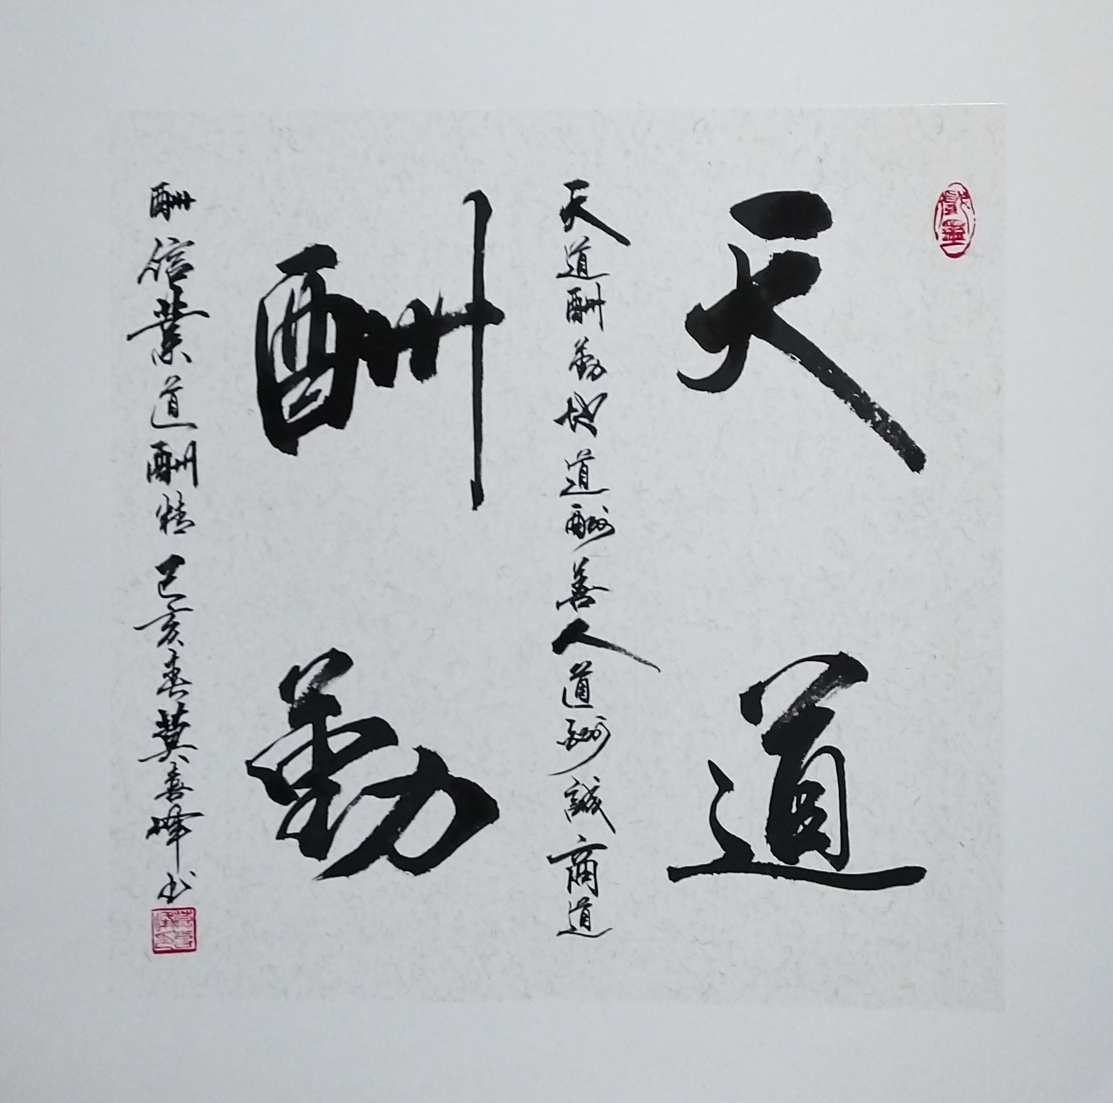 天道
天道酬勤地道酬善人道酬誠商道
酬勤
酬信業道酬精己亥春莫喜峰书